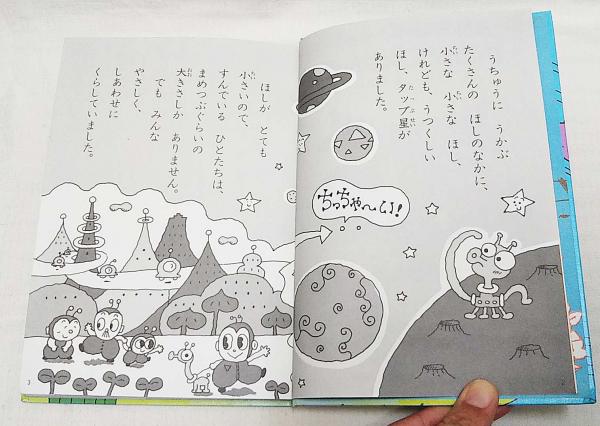 うちゅうに うかぶ
たくさんの ほしのなかに、
小さな 小さな ほし、
けれども、うつくしい
ほし、タップ星が
ありました。
ちっちゃ〜い!
ほしが とても
小さいので、
すんでいる ひとたちは、
まめつぶぐらいの
大きさしか ありません。
でも みんな
やさしく、
しあわせに
くらしていました。
3
2